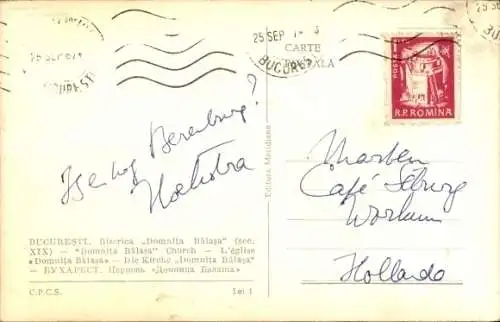 25 SEP
BUCUREȘTI
CARTE
POȘTALĂ
POSTA
R.P.ROMINA
Is er nog Berenburg?
Hoekstra
Editura Meridiane
Café
Workum
Hollande
BUCUREȘTI. Biserica „Domnița Bălașa" (sec.
XIX) — "Domnița Bălașa" Church — L'église
«Domnița Bălașa» — Die Kirche „Domnița Bălașa"
— БУХАРЕСТ. Церковь «Домница Бэлаша»
C.P.C.S.
Lei 1